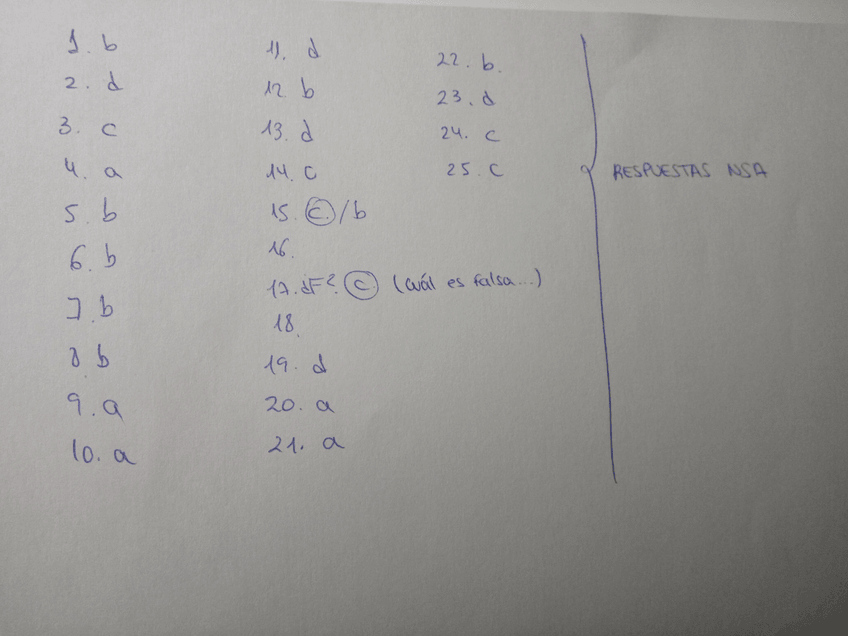 1. b
2. d
3. c
4. a
5. b
6. b
7. b
8. b
9. a
10. a
11. d
12 b
13. d
14. c
15. c. / b
16.
17. ¿F? c. (cuál es falsa...)
18.
19. d
20. a
21. a
22. b.
23. d
24. c
25. c
RESPUESTAS NSA